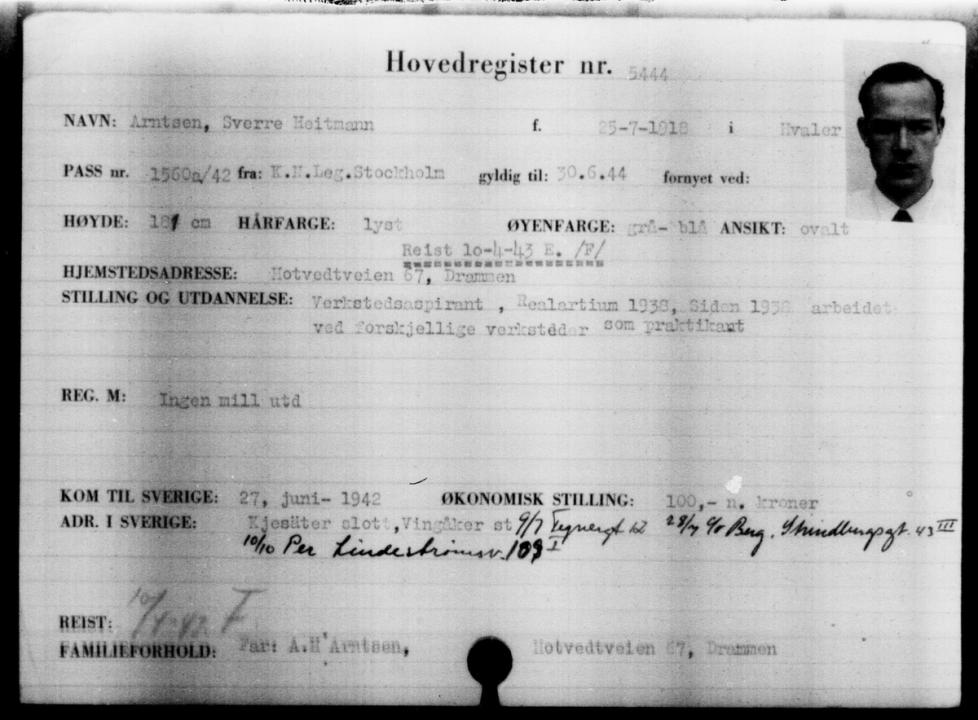 Hovedregister nr. 5444
NAVN: Arntsen, Sverre Heitmann f. 25-7-1918 i Hvaler
PASS nr. 1560a/42 fra: K.N.Leg.Stockholm gyldig til: 30.6.44 fornyet ved:
HØYDE: 181 cm HÅRFARGE: lyst ØYENFARGE: grå- blå ANSIKT: ovalt
Reist 10-4-43 E. /F/
HJEMSTEDSADRESSE: Hotvedtveien 67, Drammen
STILLING OG UTDANNELSE: Verkstedsaspirant , Realartium 1938, Siden 1938 arbeidet
ved forskjellige verksteder som praktikant
REG. M: Ingen mill utd
KOM TIL SVERIGE: 27, juni- 1942 ØKONOMISK STILLING: 100,- n. kroner
ADR. I SVERIGE: Kjesäter slott,Vingåker st 9/7 Tegnergt 28/7 c/o Berg. 43 III
10/10 Per Lindeströmsv. 109 I
REIST: 10/4-43 F
FAMILIEFORHOLD: Far: A.H Arntsen, Hotvedtveien 67, Drammen